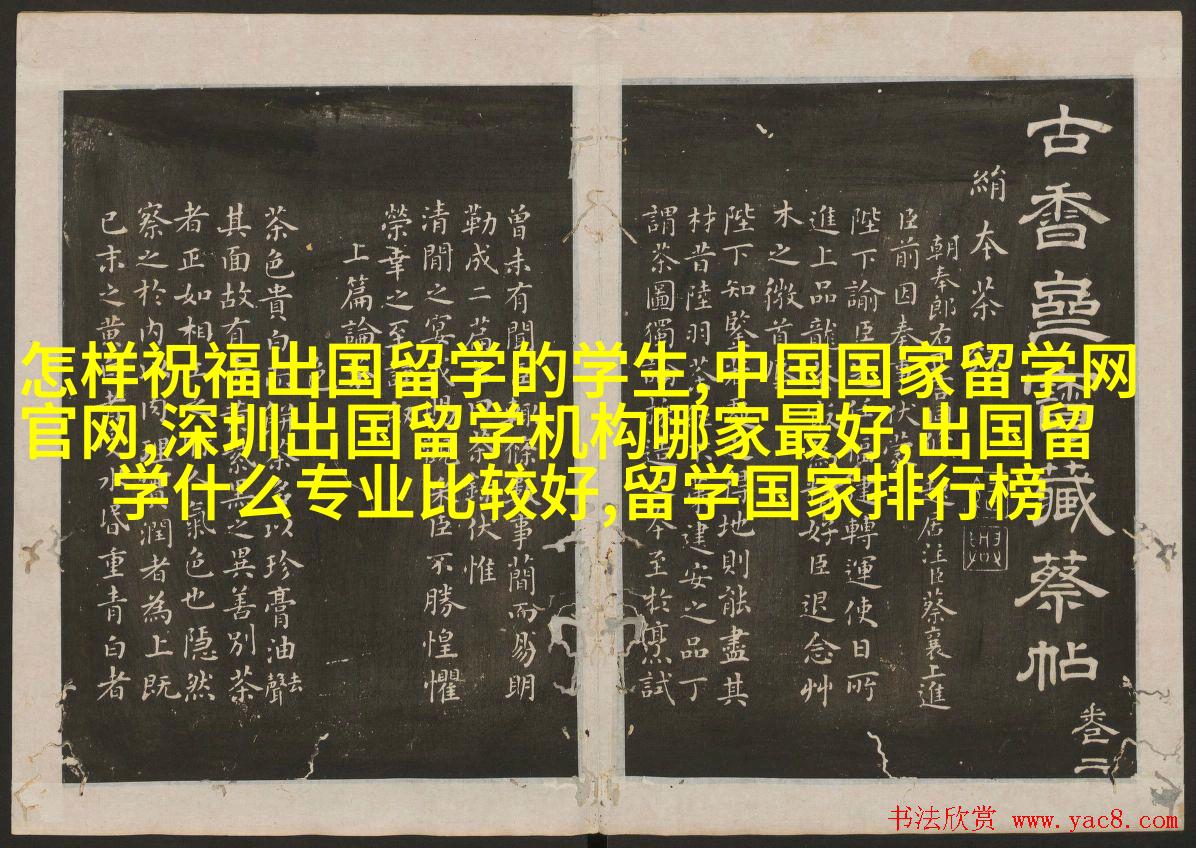 怎样祝福出国留学的学生,中国国家留学网
官网,深圳出国留学机构哪家最好,出国留
学什么专业比较好,留学国家排行榜
古香齋寶藏蔡帖 卷二
絹本茶
朝奉郎右居注臣蔡襄上進
臣前因奉事伏蒙
陛下諭臣建轉運使日所
進上品龍茶好臣退念艸
木之微首
陛下知鑒地則能盡其
材昔陸羽茶建安之品丁
謂茶圖獨至於烹試
曾未有聞條事簡而易明
勒成二篇伏惟
清閒之宴或臣不勝惶懼
榮幸之至
上篇論茶
茶色貴白以珍膏油去聲
其面故有之異善別茶
者正如相氣色也隱然
察之於內潤者為上既
已末之黃水昏重青白者
书法欣赏 www.yac8.com